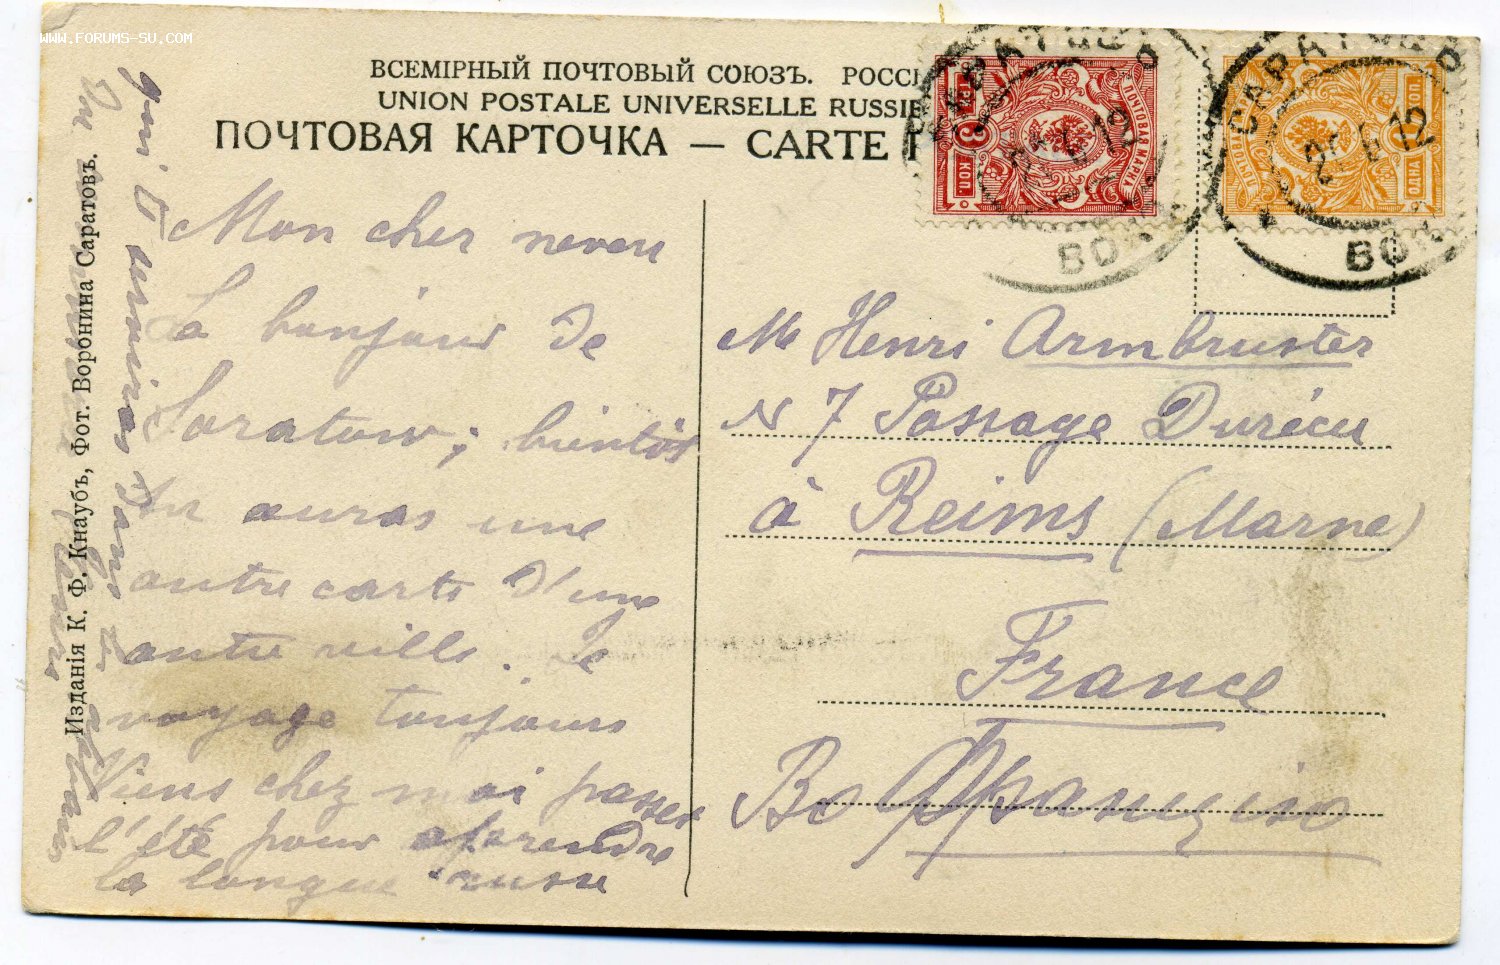 WWW.FORUMS-SU.COM
ВСЕМІРНЫЙ ПОЧТОВЫЙ СОЮЗЪ. РОССІ
UNION POSTALE UNIVERSELLE RUSSIE
ПОЧТОВАЯ КАРТОЧКА — CARTE
САРАТОВЪ
12
ВОК
ПОЧТОВАЯ МАРКА
3 КОП.
САРАТОВЪ
12
ВОК
ОДНА
Mon cher neveu
Le bonjour de
Saratow; bientôt
tu auras une
autre carte d'une
autre ville. Je
voyage toujours
Viens chez moi passer
l'été pour aprendre
la langue russe
qui t'
dans
Изданія К. Ф. Кнаубъ, Фот. Воронина Саратовъ.
Mr Henri Armbruster
N 7 Passage Durécu
à Reims (Marne)
France
Во Францію